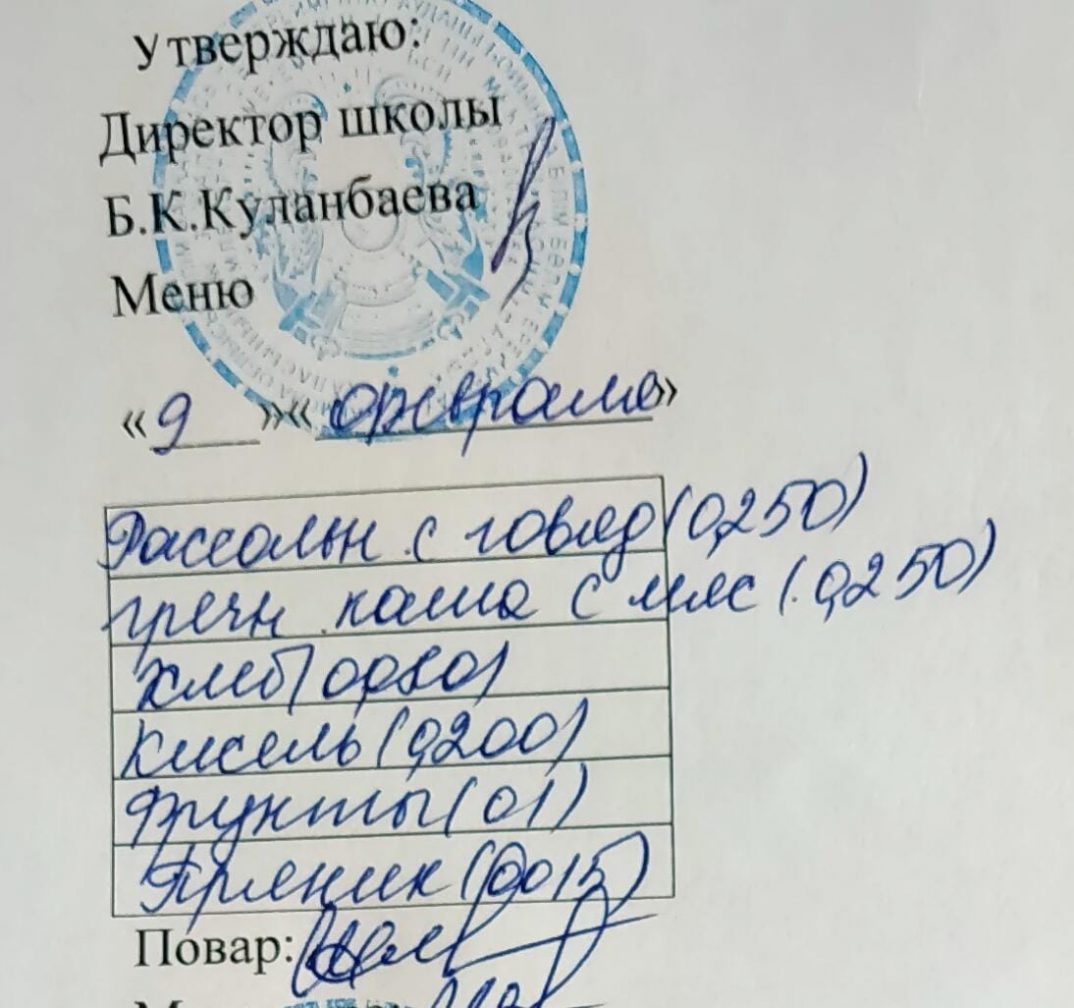 Утверждаю:
Директор школы
Б.К.Куланбаева
Меню
«9»«февраля»
Рассольн с говяд (0,250)
гречн каша с мяс (0,250)
Хлеб (0,080)
Кисель (0,200)
Фрукты (01)
Пряник (0,015)
Повар: